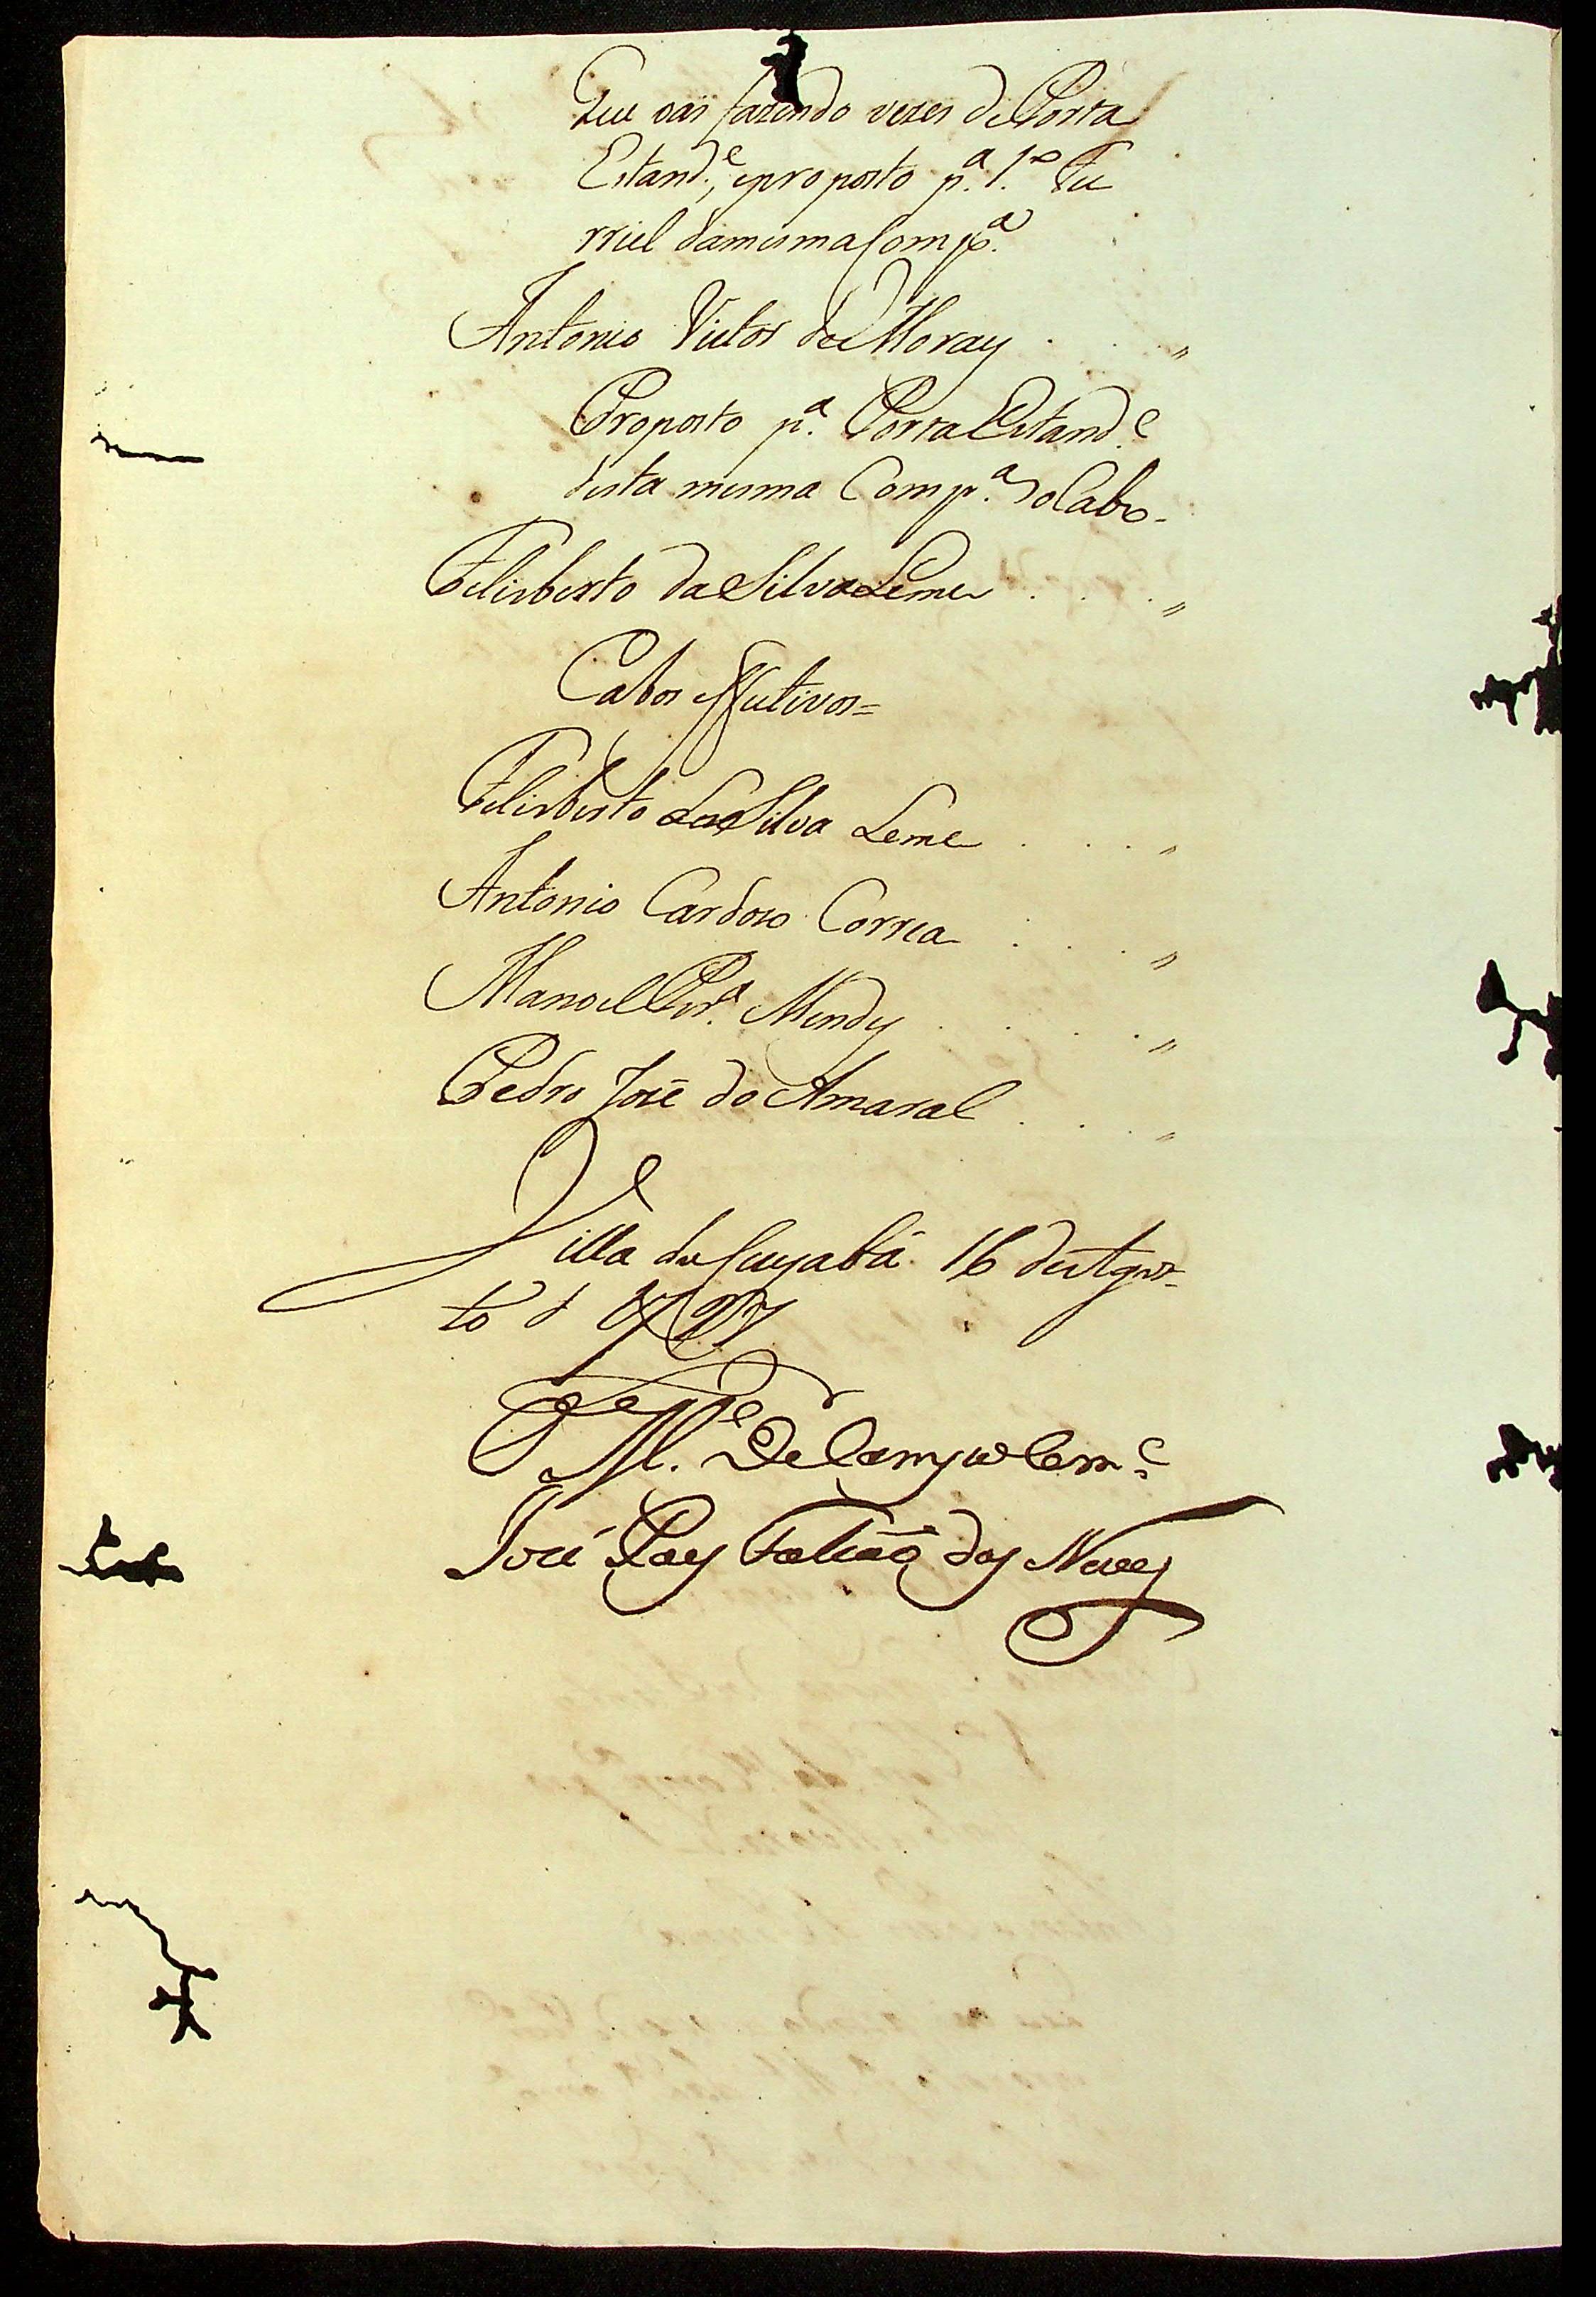 Que vai fazendo vezes de Porta
Estand.e, e proposto p.a 1.o Fu
rriel da mesma Comp.a
Antonio Victor de Moraes . . . "
Proposto p.a Porta Estand.e
desta mesma Comp.a o Cabo -
Felisberto da Silva Leme . . . "
Cabos effectivos =
Felisberto da Silva Leme . . . "
Antonio Cardozo Correa . . . "
Manoel Per.a Mendes . . . "
Pedro José do Amaral . . . "
Villa do Cuyabá 16 de Agos-
to d
M.e De Campo Com.e
José Paes Falcaõ das Neves